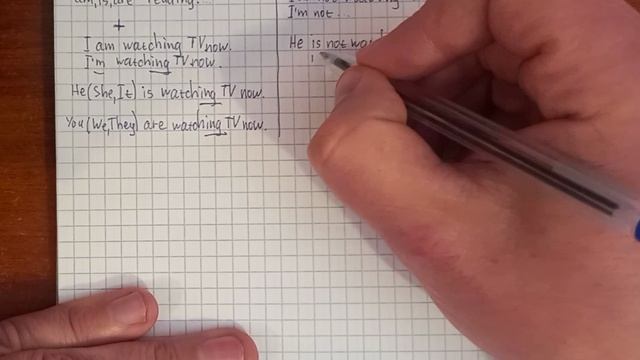 am, is, are reading.
+
I am watching TV now.
I'm watching TV now.
He (She, It) is watching TV now.
You (We, They) are watching TV now.
I'm not...
He is not